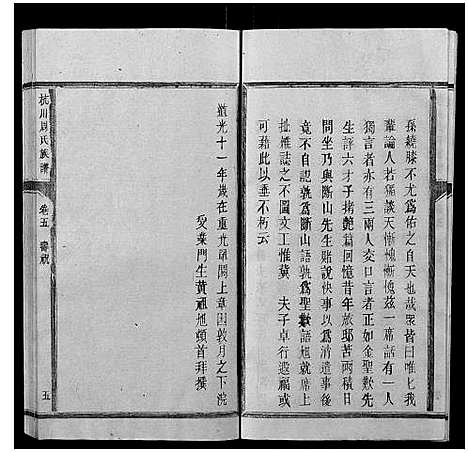 孫繞膝不尤爲佑之自天也哉衆皆曰唯七我
輩論人若痛談天慚愧慚愧茲一席話有一人
獨言者亦有三兩人交口言者正如金聖歎先
生評六才子拷艷篇回憶昔年旅邸苦雨積日
間坐乃與斷山先生賭說快事以爲消遣後事
竟不自認孰爲斷山語孰爲聖歎語旭就席上
批雜誌之不圖文工惟冀 夫子卓行遐福或
可藉此以垂不朽云
道光十一年歲在重光單閼上章困敦月之下浣
受業門生黃 旭頓首拜撰
杭川周氏族譜
卷五 壽祝
五